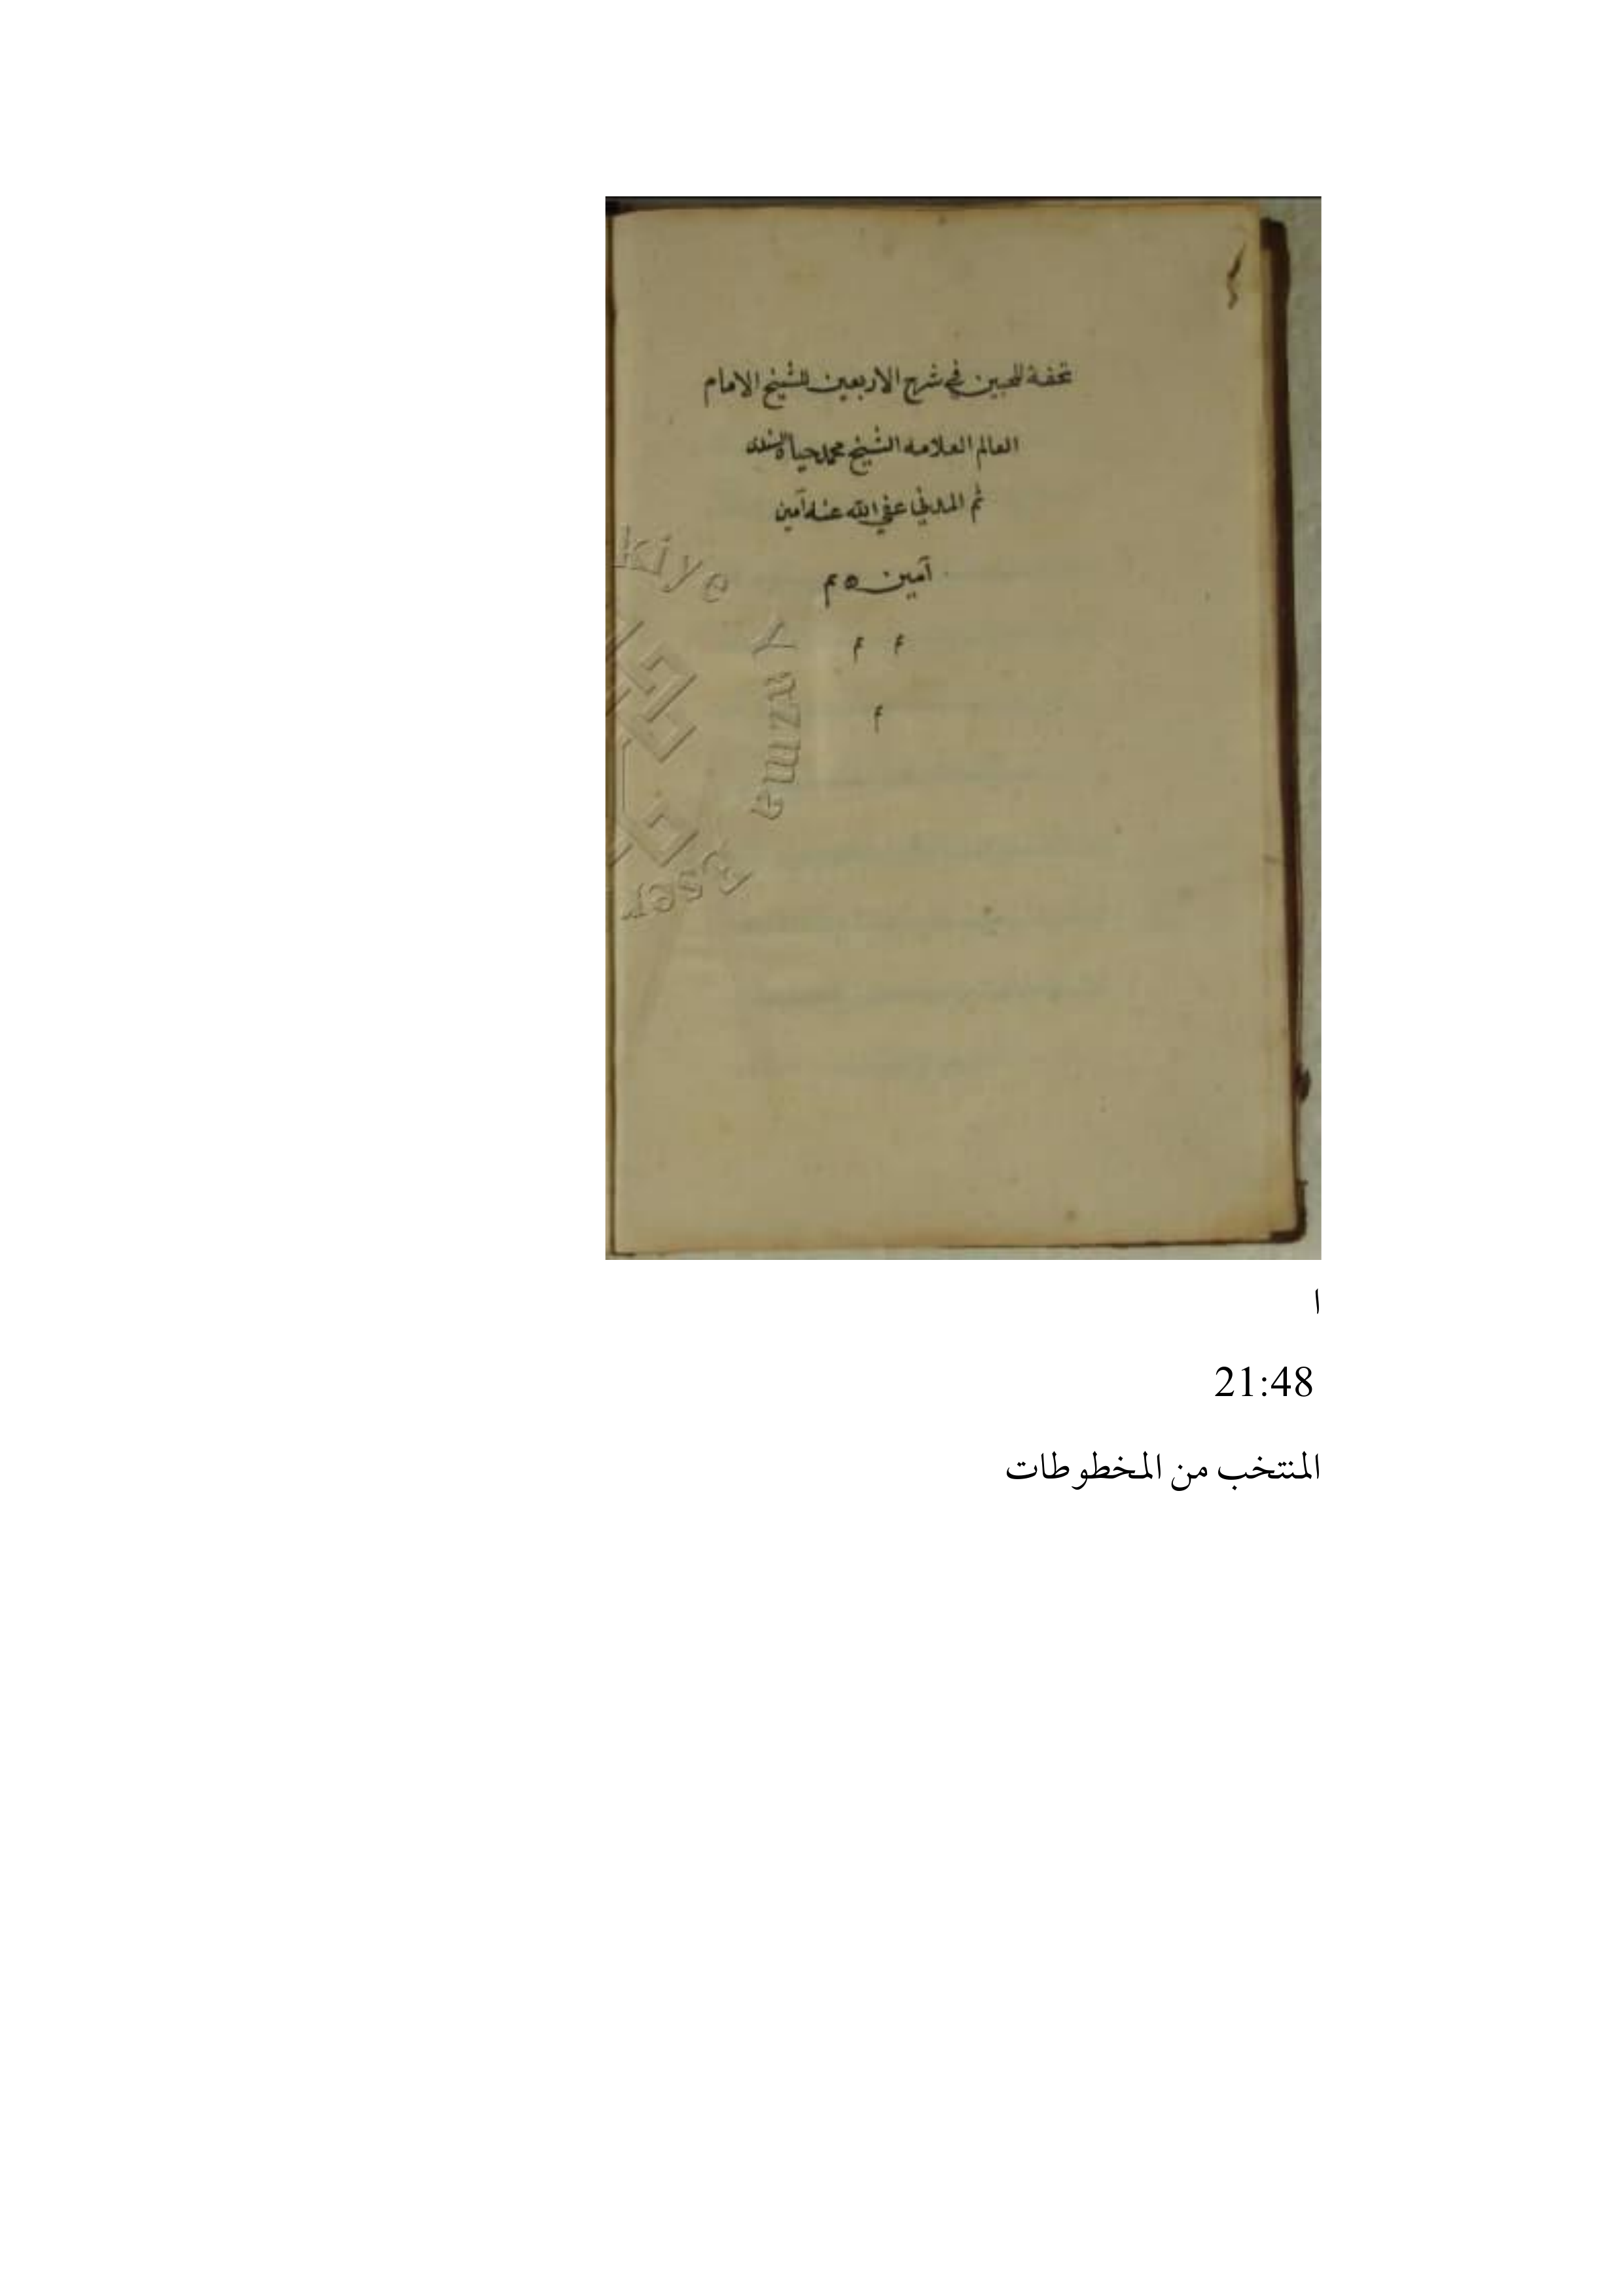 تحفة المحبين في شرح الاربعين للشيخ الامام
العالم العلامه الشيخ محمد حياة السندى
ثم المدني عفي الله عنه آمين
آمين ٥ م
م م
م
kiye Yazma Eser
ا
21:48
المنتخب من المخطوطات